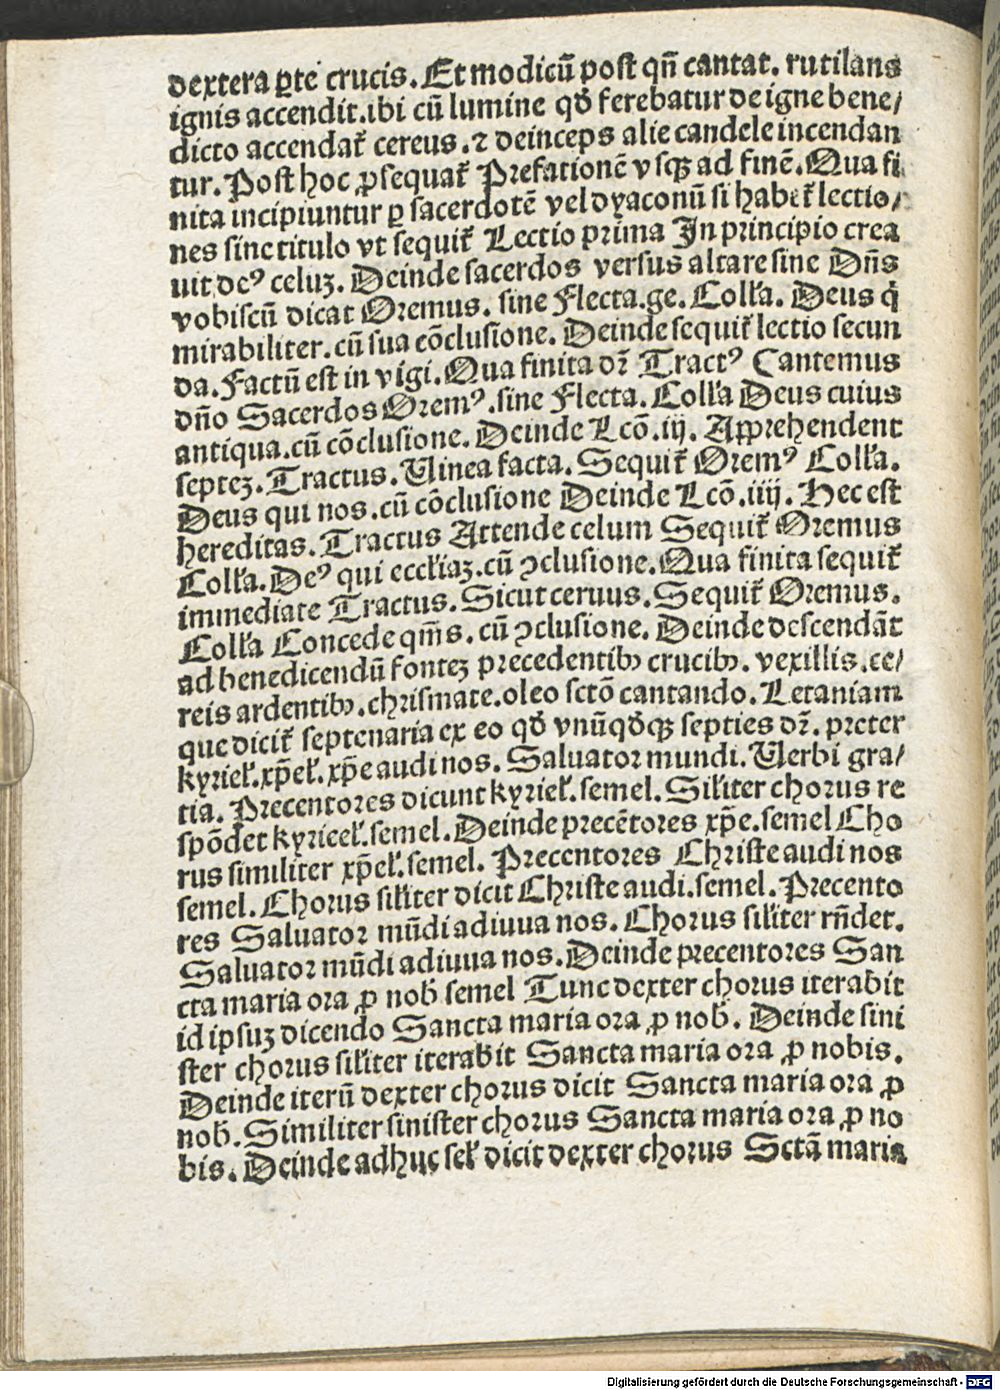 dextera ꝑte crucis. Et modicū post qñ cantat. rutilans
ignis accendit. ibi cū lumine qď ferebatur de igne bene/
dicto accendať cereus. ⁊ deinceps alie candele incendan
tur. Post hoc ꝓsequať Prefationē vsqꝫ ad finē. Qua fi
nita incipiuntur ꝑ sacerdotē vel dyaconū si habeť lectio/
nes sine titulo vt sequiť Lectio prima In principio crea
uit deꝰ celuꝫ. Deinde sacerdos versus altare sine Dñs
vobiscū dicat Oremus. sine Flecta.ge. Coll'a. Deus q̇
mirabiliter. cū sua cōclusione. Deinde sequiť lectio secun
da. Factū est in vigi. Qua finita dr̄ Tractꝰ Cantemus
dño Sacerdos Oremꝰ. sine Flecta. Coll'a Deus cuius
antiqua. cū cōclusione. Deinde Lcō .iij. Apprehendent
septeꝫ. Tractus. Uinea facta. Sequiť Oremꝰ Coll'a.
Deus qui nos. cū cōclusione Deinde Lcō .iiij. Hec est
hereditas. Tractus Attende celum Sequiť Oremus
Coll'a. Deꝰ qui eccl'iaꝫ. cū ꝯclusione. Qua finita sequiť
immediate Tractus. Sicut ceruus. Sequiť Oremus.
Coll'a Concede qm̄s. cū ꝯclusione. Deinde descendāt
ad benedicendū fonteꝫ precedentibꝰ crucibꝰ. vexillis. ce/
reis ardentibꝰ. chrismate. oleo sctō cantando. Letaniam
que diciť septenaria ex eo qď vnūqďqꝫ septies dr̄. preter
kyriel'. xp̄el'. xp̄e audi nos. Saluator mundi. Uerbi gra/
tia. Precentores dicunt kyriel'. semel. Sil'iter chorus re
spōdet kyrieel'. semel. Deinde precētores xp̄e. semel Cho
rus similiter xp̄el'. semel. Precentores Christe audi nos
semel. Chorus sil'iter dicit Christe audi. semel. Precento
res Saluator mūdi adiuua nos. Chorus sil'iter rñdet.
Saluator mūdi adiuua nos. Deinde precentores San
cta maria ora ꝓ nob̄ semel Tunc dexter chorus iterabit
id ipsuꝫ dicendo Sancta maria ora ꝓ nob̄. Deinde sini
ster chorus sil'iter iterabit Sancta maria ora ꝓ nobis.
Deinde iterū dexter chorus dicit Sancta maria ora ꝓ
nob̄. Similiter sinister chorus Sancta maria ora ꝓ no
bis. Deinde adhuc sel' dicit dexter chorus Sctā maria
Digitalisierung gefördert durch die Deutsche Forschungsgemeinschaft - DFG